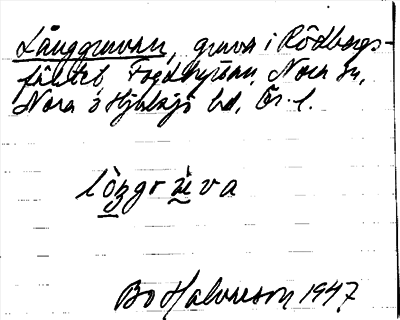 Långgruvan, gruva i Rödbergs-
fältet, Fogdhyttan, Nora sn,
Nora o Hjulsjö bd, Ör. l.
Bo Halvarson 1947.